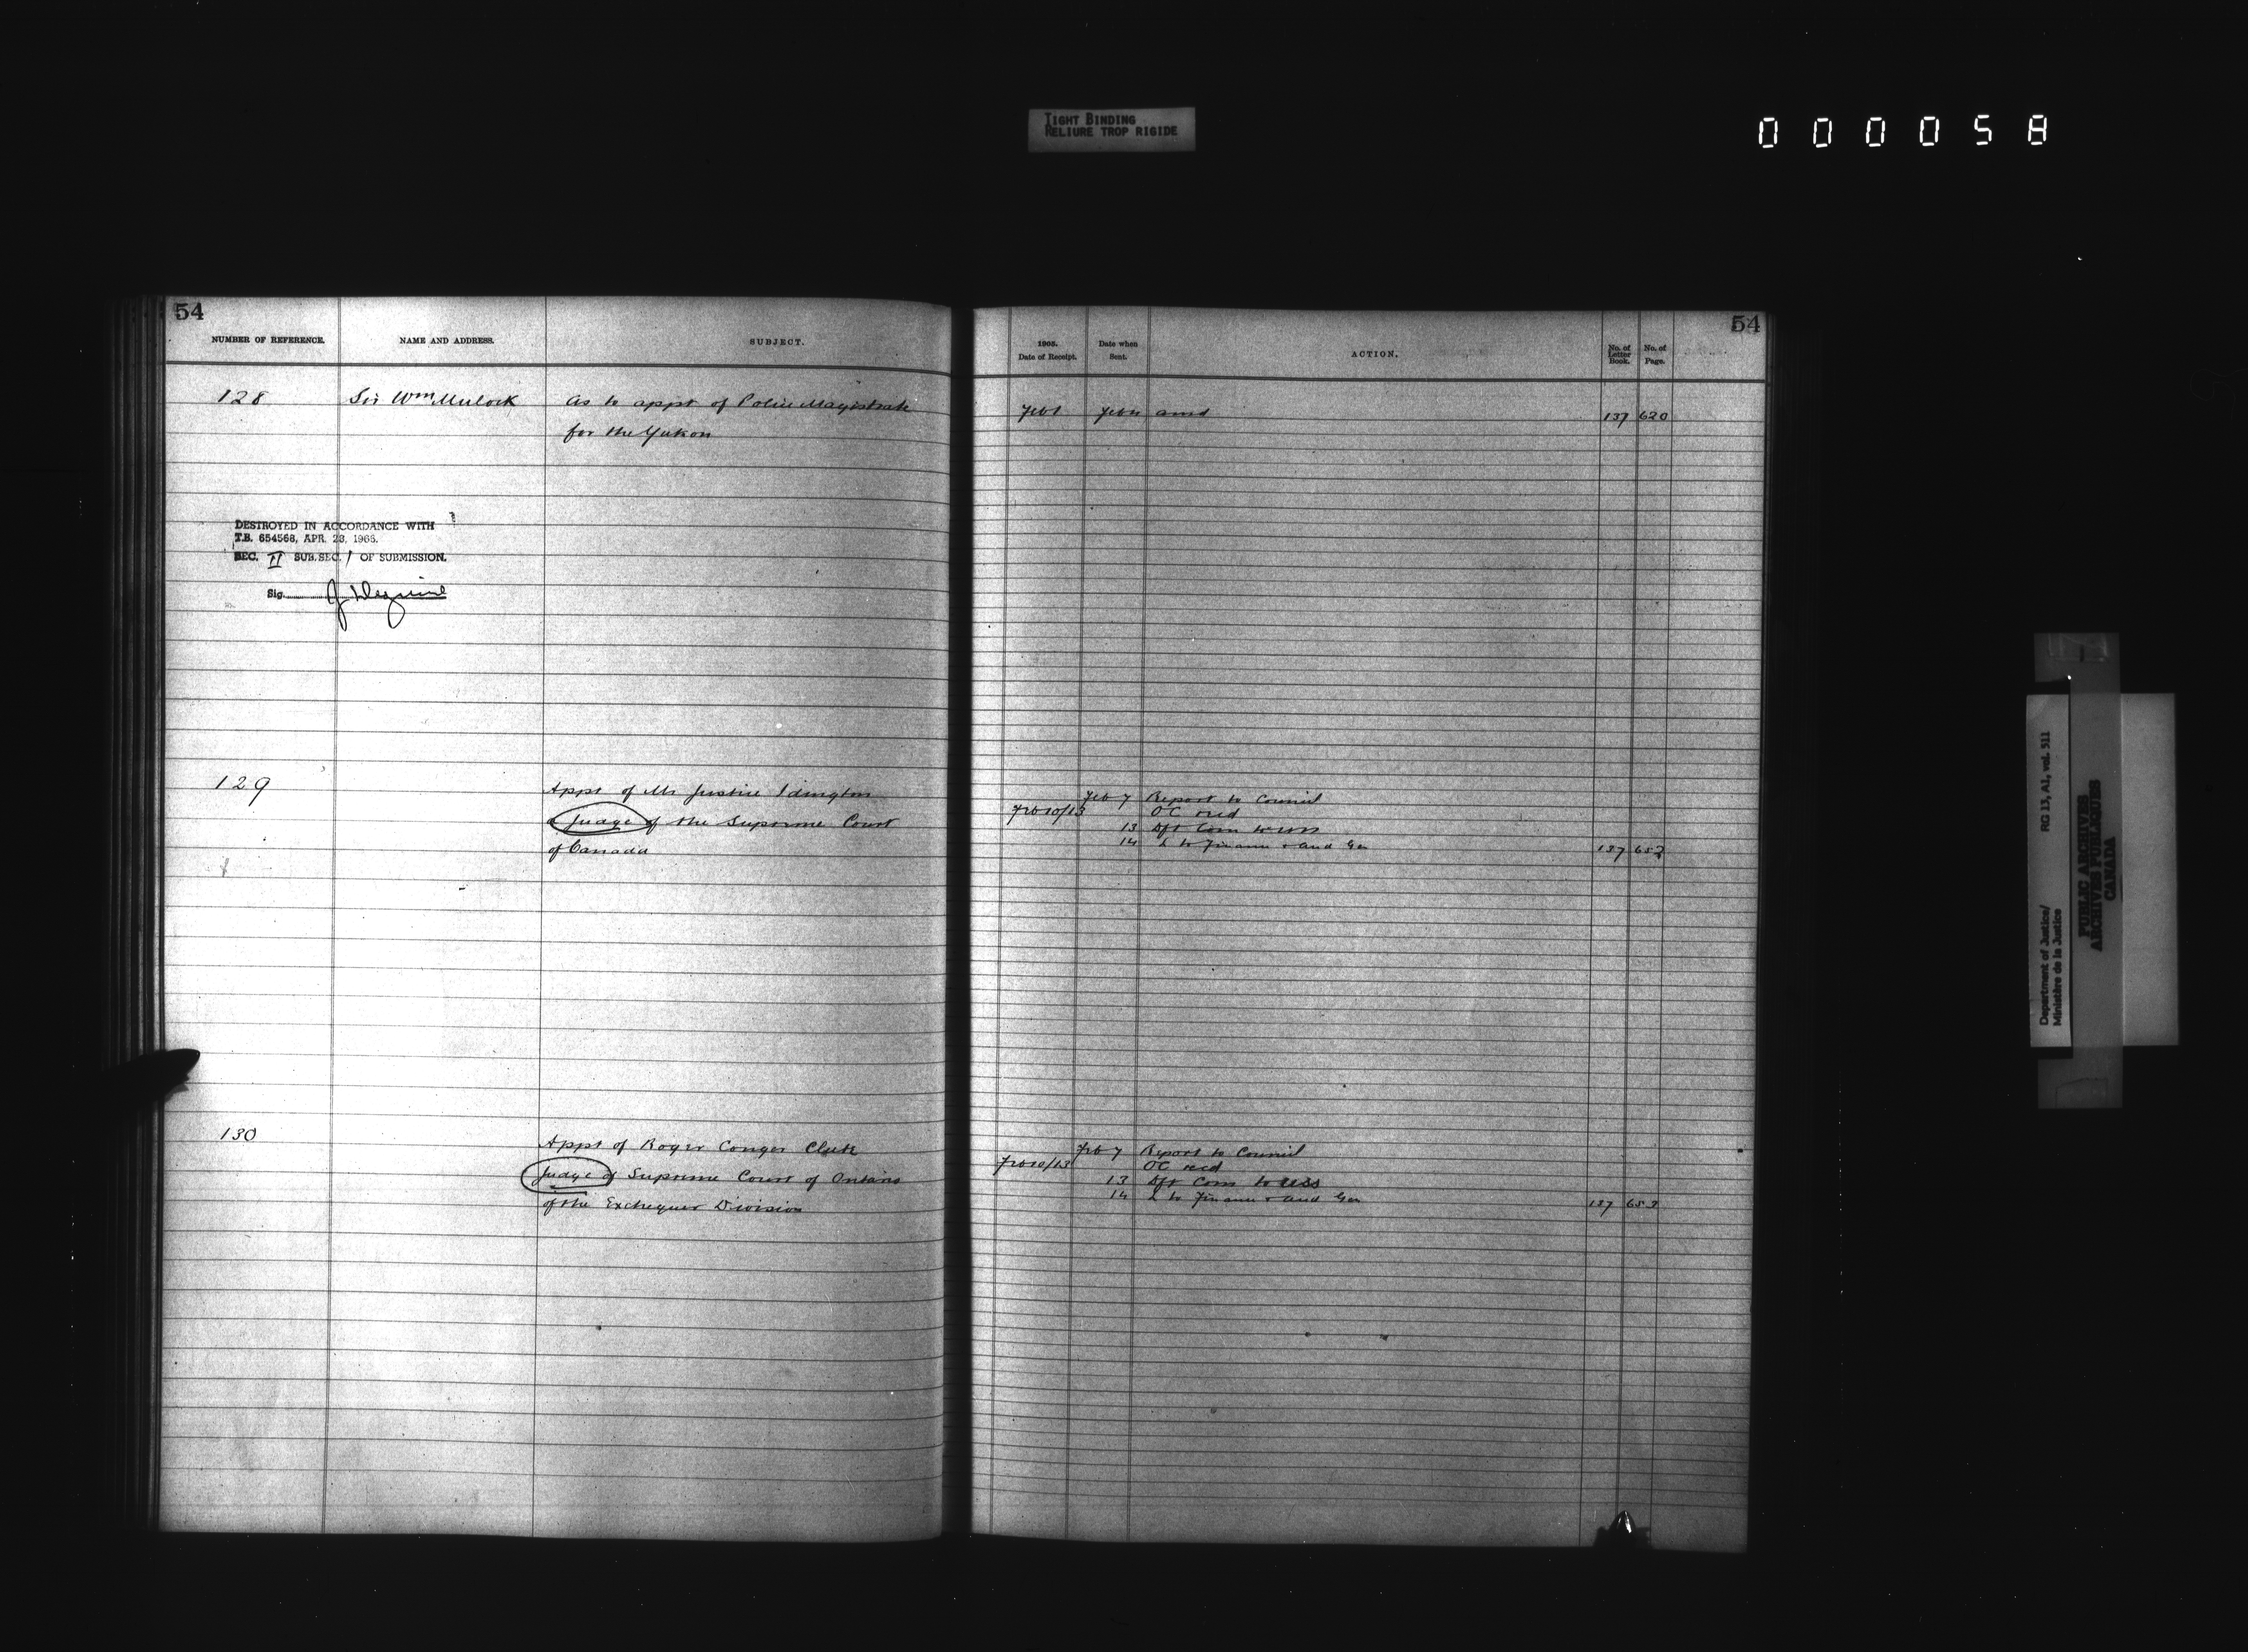 TIGHT BINDING
RELIURE TROP RIGIDE
000058
54
NUMBER OF REFERENCE.
NAME AND ADDRESS.
SUBJECT.
128
Sir Wm Mulock
As to appt of Police Magistrate
for the Yukon
DESTROYED IN ACCORDANCE WITH
T.B. 654568, APR. 28, 1966.
SEC. II SUB.SEC. 1 OF SUBMISSION.
Sig.
129
Appt of Mr Justice Idington
a Judge of the Supreme Court
of Canada
130
Appt of Roger Conger Clute
Judge of Supreme Court of Ontario
of the Exchequer Division
54
1905.
Date of Receipt.
Date when
Sent.
ACTION.
No. of
Letter
Book.
No. of
Page.
Feb 1 Feb 11 amd 137 620
Feb 7 Report to Council
Feb 10/13 OC recd
13 Dft Com to
14 L to Finance + Aud Gen 137 653
Feb 7 Report to Council
Feb 10/13 OC recd
13 Dft Com to USS
14 L to Finance + Aud Gen 137 653
Department of Justice/
Ministère de la Justice
RG 13, A1, vol. 511
PUBLIC ARCHIVES
ARCHIVES PUBLIQUES
CANADA